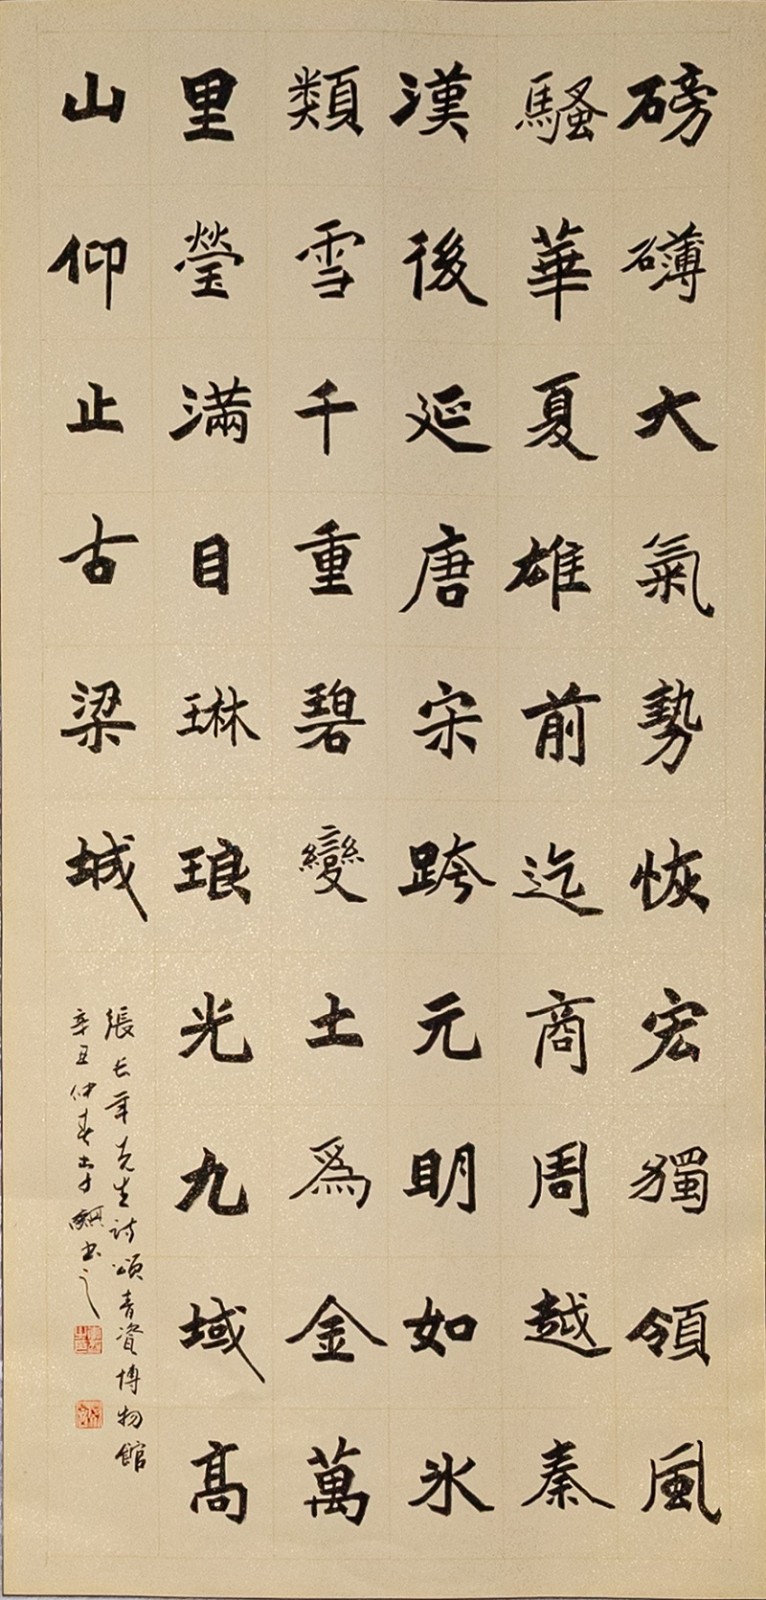 磅礴大氣勢恢宏獨領風
騷華夏雄前迄商周越秦
漢後延唐宋跨元明如氷
類雪千重碧變土爲金萬
里瑩滿目琳琅光九域高
山仰止古梁城
張長年先生詩頌青資博物館
辛丑仲春李書之